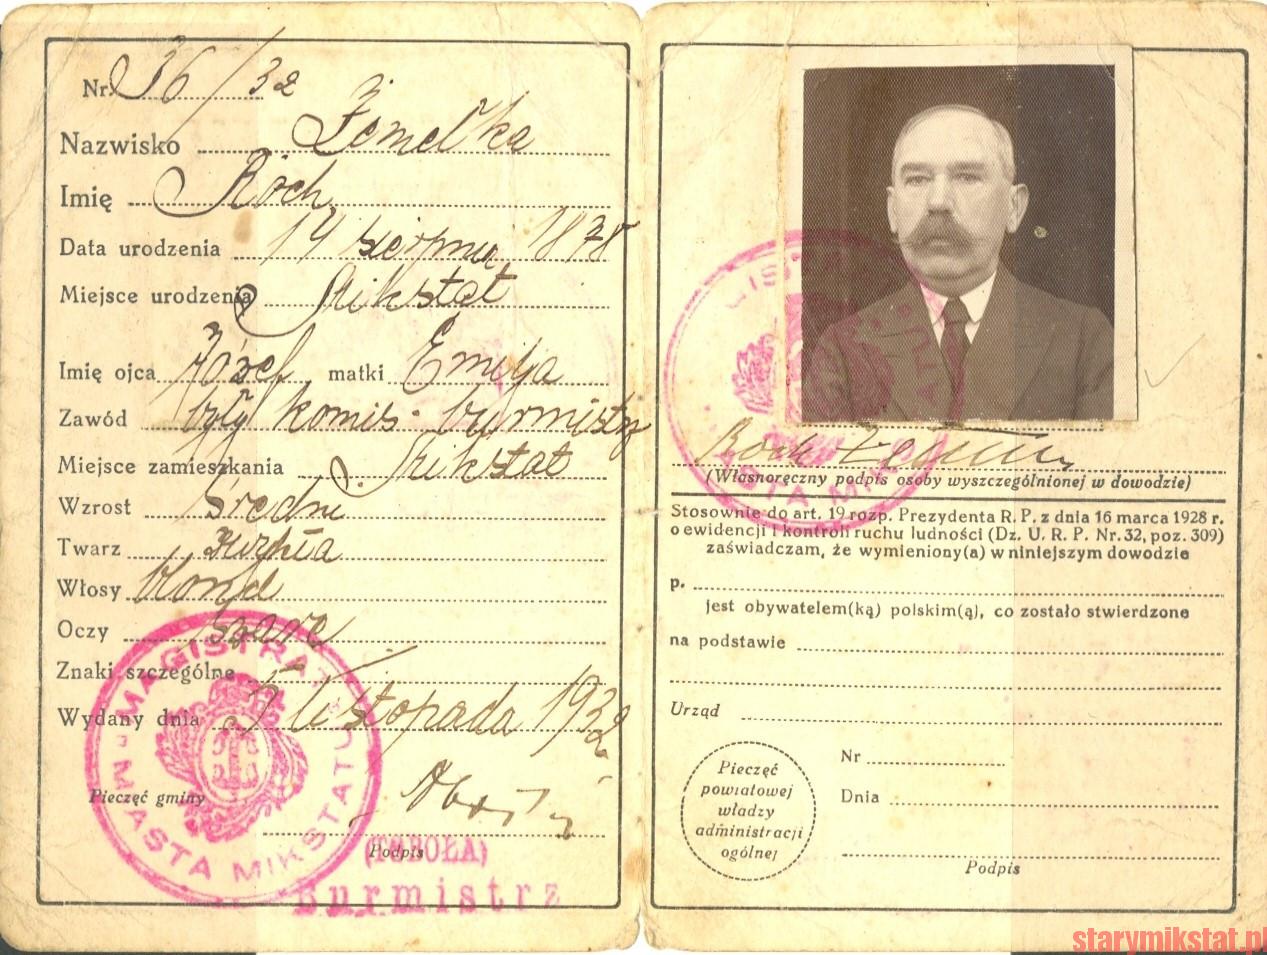 Nr 36/32
Nazwisko Żemełka
Imię Roch
Data urodzenia 14 sierpnia 1878
Miejsce urodzenia Mikstat
Imię ojca Józef matki Emilja
Zawód były komis. burmistrz
Miejsce zamieszkania Mikstat
Wzrost średni
Twarz
Włosy blond
Oczy szare
Znaki szczególne
Wydany dnia 5 listopada 1932
Pieczęć gminy
Podpis
MAGISTRAT
MIASTA MIKSTATU
Burmistrz
Roch
(Własnoręczny podpis osoby wyszczególnionej w dowodzie)
Stosownie do art. 19 rozp. Prezydenta R. P. z dnia 16 marca 1928 r.
o ewidencji i kontroli ruchu ludności (Dz. U. R. P. Nr. 32, poz. 309)
zaświadczam, że wymieniony(a) w niniejszym dowodzie
p.
jest obywatelem(ką) polskim(ą), co zostało stwierdzone
na podstawie
Urząd
Pieczęć
powiatowej
władzy
administracji
ogólnej
Nr
Dnia
Podpis
starymikstat.pl